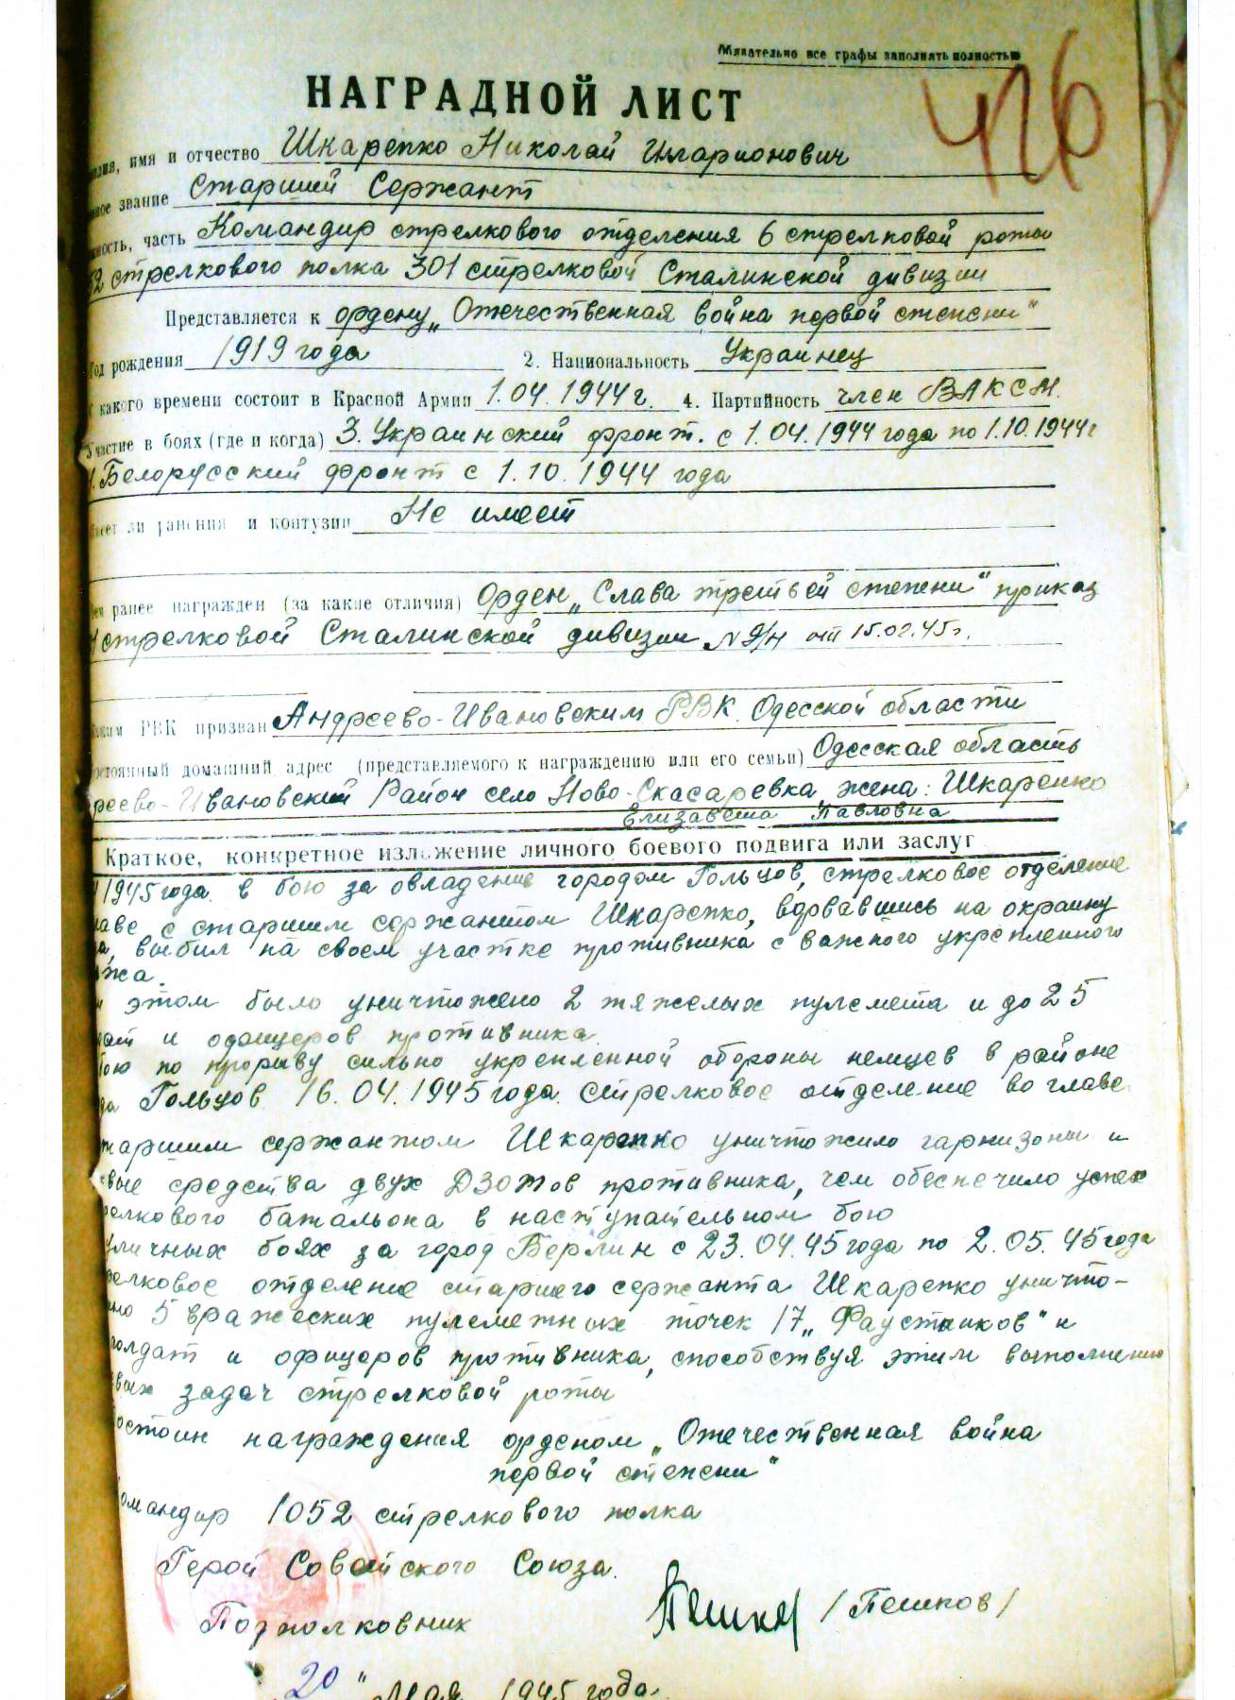 Обязательно все графы заполнять полностью
426
НАГРАДНОЙ ЛИСТ
имя и отчество Шкарепко Николай Иларионович
звание Старший Сержант
часть Командир стрелкового отделения 6 стрелковой роты
52 стрелкового полка 301 стрелковой Сталинской дивизии
Представляется к ордену „Отечественная война первой степени"
Год рождения 1919 года 2. Национальность Украинец
С какого времени состоит в Красной Армии 1.04.1944 г. 4. Партийность член ВЛКСМ.
Участие в боях (где и когда) 3. Украинский фронт. с 1.04.1944 года по 1.10.1944г
1. Белорусский фронт с 1.10.1944 года
ли ранения и контузии Не имеет
ранее награжден (за какие отличия) Орден „Слава третьей степени" приказ
1 стрелковой Сталинской дивизии № 9/н от 15.02.45г.
РВК призван Андреево-Ивановским РВК. Одесской области
домашний адрес (представляемого к награждению или его семьи) Одесская область
реево-Ивановский Район село Ново-Скасаревка жена: Шкаренко
Елизавета Павловна
Краткое, конкретное изложение личного боевого подвига или заслуг
1945 года. в бою за овладение городом Гольцов, стрелковое отделение
лаве с старшим сержантом Шкарепко, ворвавшись на окраину
да, выбил на своем участке противника с важного укрепленного
жа.
этом было уничтожено 2 тяжелых пулемета и до 25
дат и офицеров противника.
бою по прорыву сильно укрепленной обороны немцев в районе
да Гольцов 16.04.1945 года. Стрелковое отделение во главе
таршим сержантом Шкарепко уничтожило гарнизоны и
евые средства двух ДЗОТов противника, чем обеспечило успех
релкового батальона в наступательном бою
уличных боях за город Берлин с 23.04.45 года по 2.05.45 года
релковое отделение старшего сержанта Шкарепко уничто-
ло 5 вражеских пулеметных точек 17 „Фаустников" и
солдат и офицеров противника, способствуя этим выполнению
вых задач стрелковой роты
остоин награждения орденом „Отечественная война
первой степени"
омандир 1052 стрелкового полка
Герой Советского Союза.
Подполковник Пешков /Пешков/
20 " Мая 1945 года.